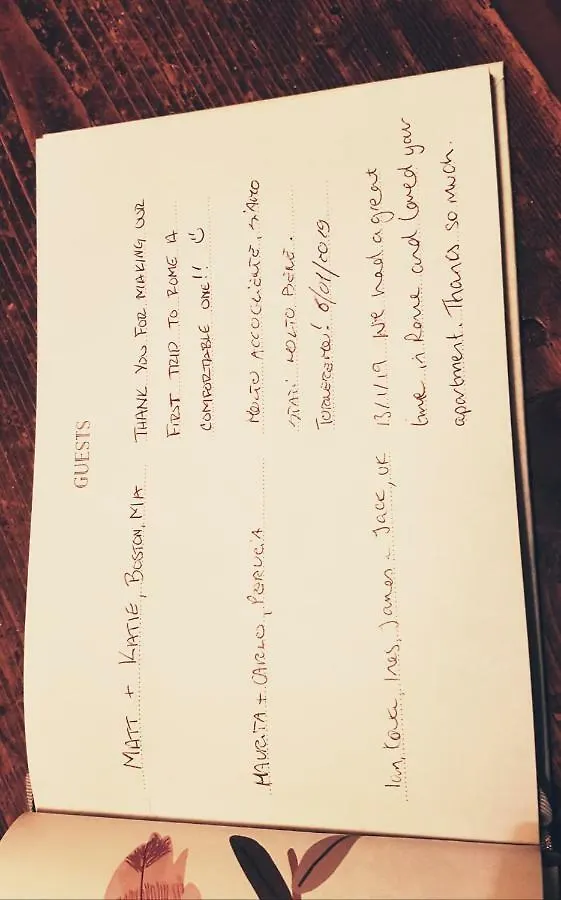 GUESTS
MATT + KATIE, BOSTON, MA THANK YOU FOR MAKING OUR
FIRST TRIP TO ROME A
COMFORTABLE ONE!! :)
MAURITA + CARLO, PERUGIA MOLTO ACCOGLIENTE, SIAMO
STATI MOLTO BENE.
TORNEREMO! 6/01/2019
Ian, Ines, James - Jack, UK 13/1/19 We had a great
time in Rome and loved your
apartment. Thanks so much.